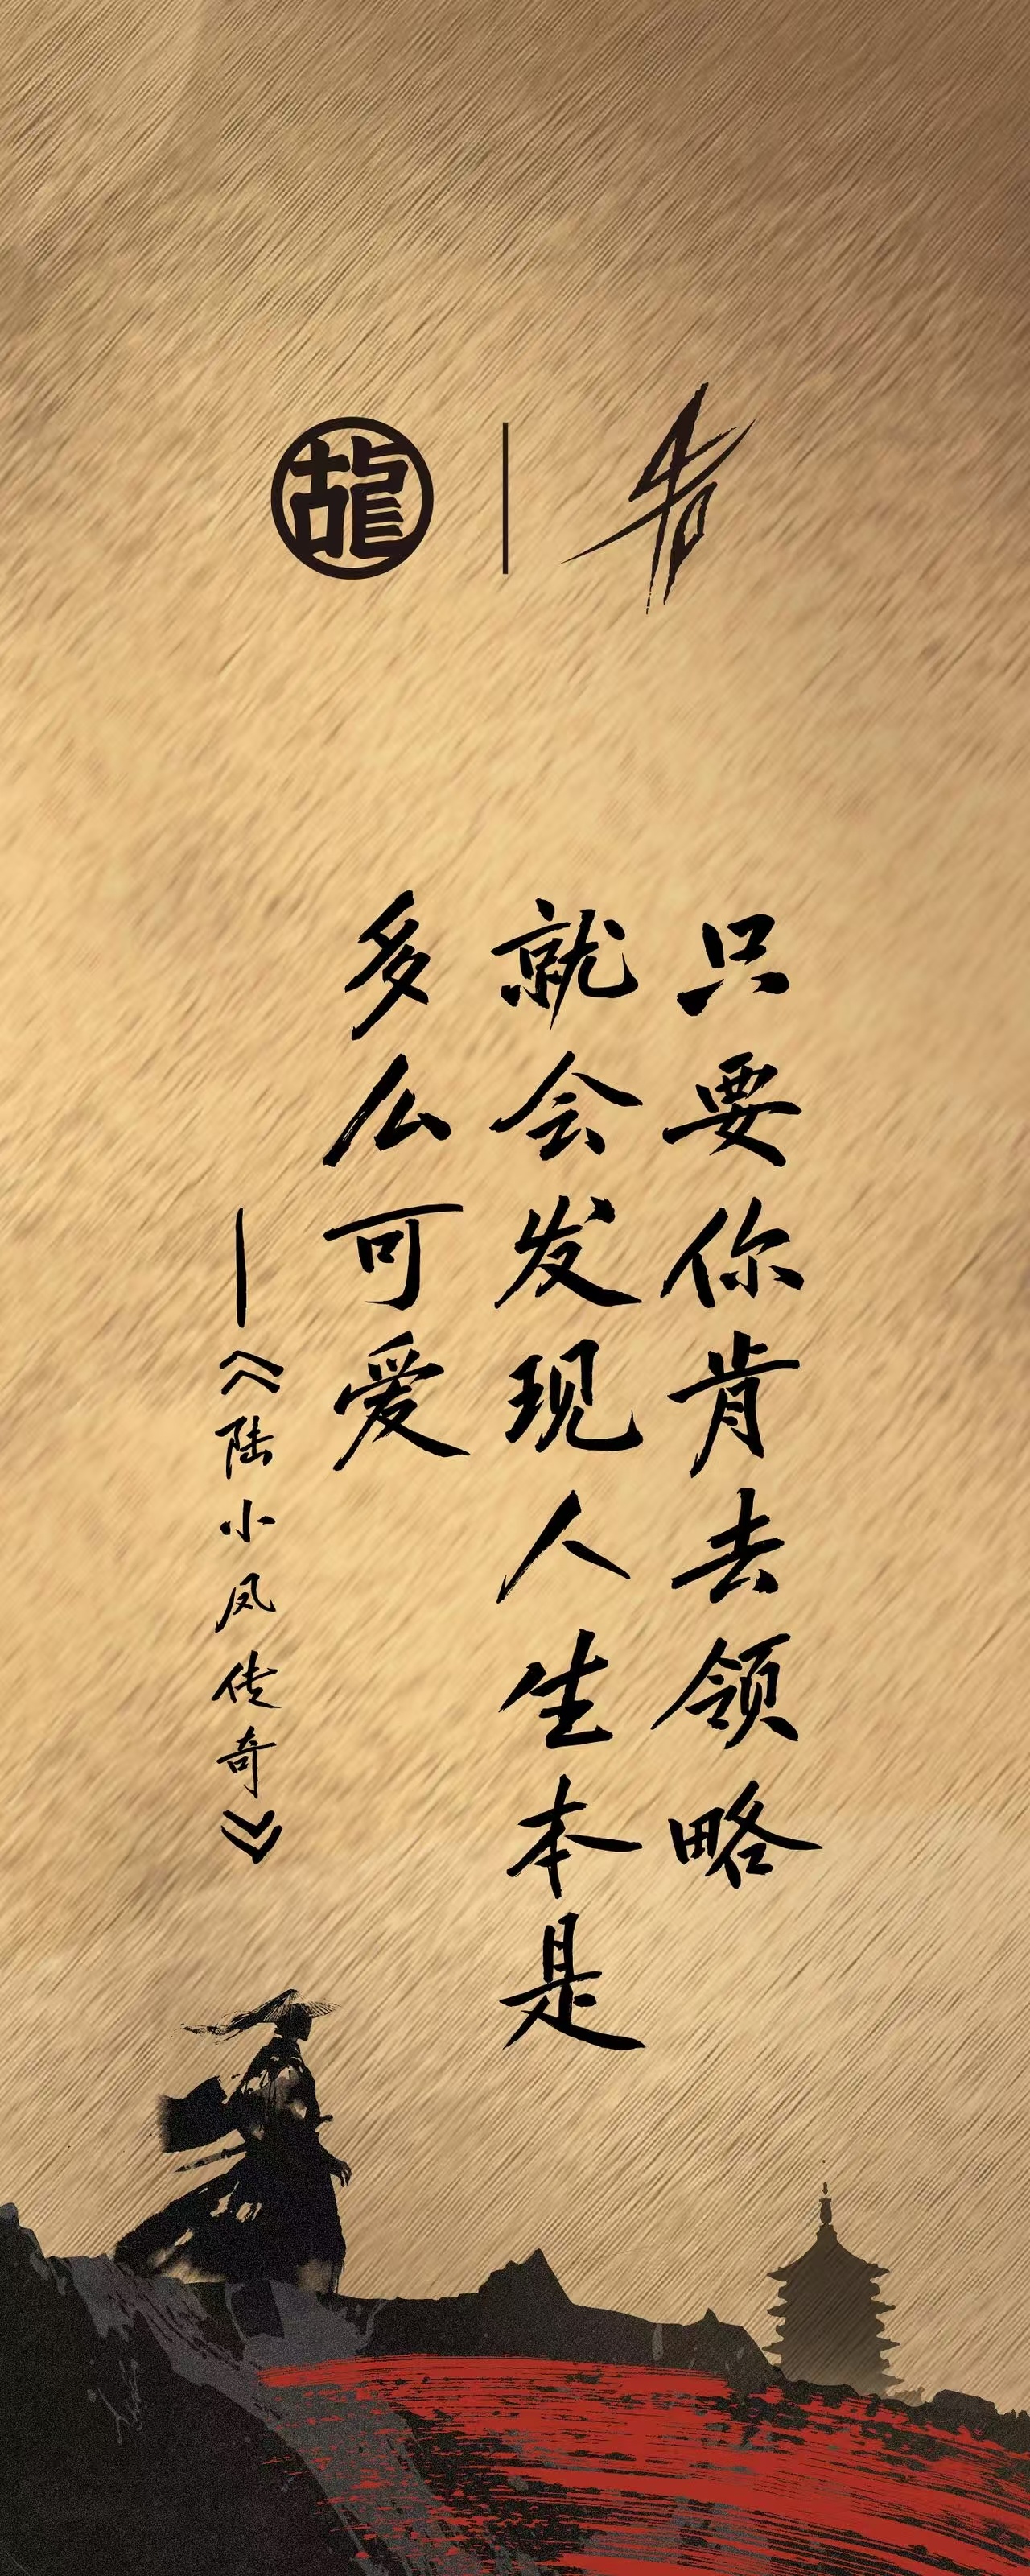 古龍
只要你肯去领略
就会发现人生本是
多么可爱
—《陆小凤传奇》